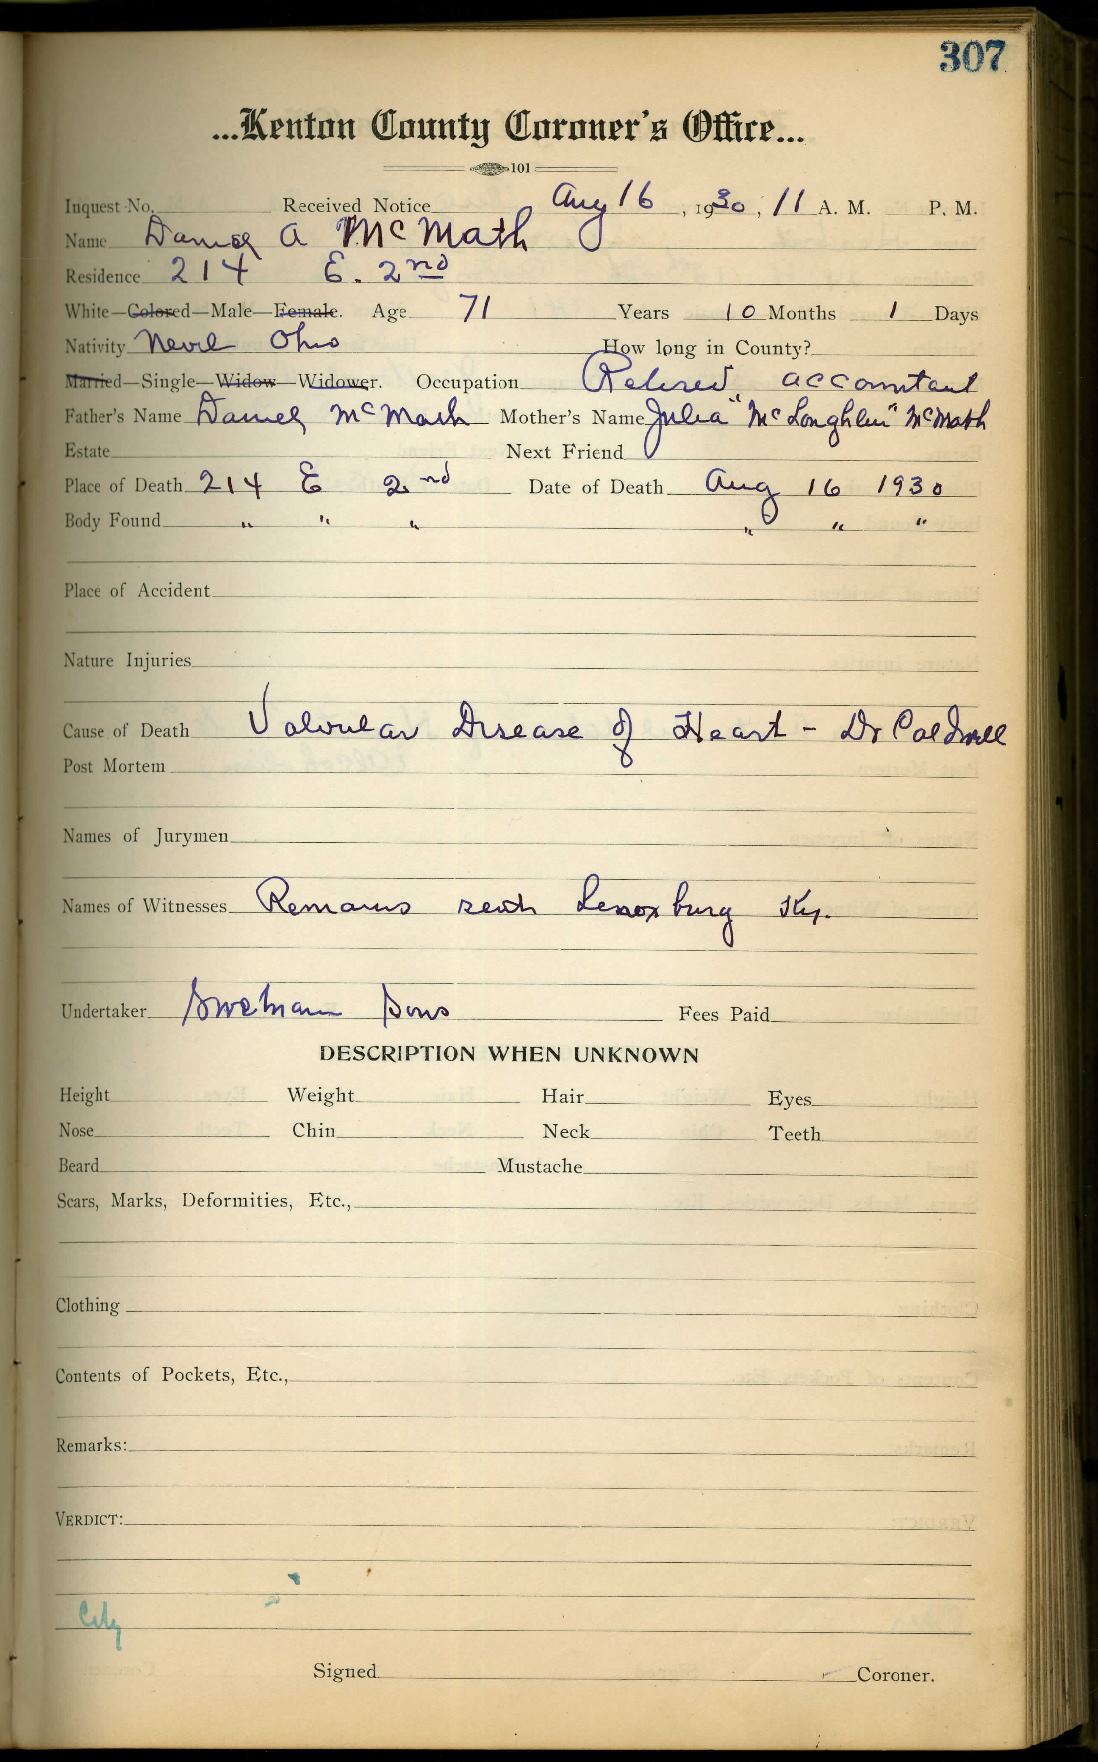 307
...Kenton County Coroner's Office...
101
Inquest No. Received Notice Aug 16, 1930, 11 A. M. P. M.
Name Daniel A McMath
Residence 214 E. 2nd
White—Colored—Male—Female. Age 71 Years 10 Months 1 Days
Nativity Nevil Ohio How long in County?
Married—Single—Widow—Widower. Occupation Retired accountant
Father's Name Daniel McMath Mother's Name Julia "McLoughlin" McMath
Estate Next Friend
Place of Death 214 E 2nd Date of Death Aug 16 1930
Body Found " " " " " "
Place of Accident
Nature Injuries
Cause of Death Valvular Disease of Heart - Dr Caldwell
Post Mortem
Names of Jurymen
Names of Witnesses Remains sent Lenoxburg Ky.
Undertaker Swetnam Sons Fees Paid
DESCRIPTION WHEN UNKNOWN
Height Weight Hair Eyes
Nose Chin Neck Teeth
Beard Mustache
Scars, Marks, Deformities, Etc.,
Clothing
Contents of Pockets, Etc.,
Remarks:
VERDICT:
City
Signed Coroner.